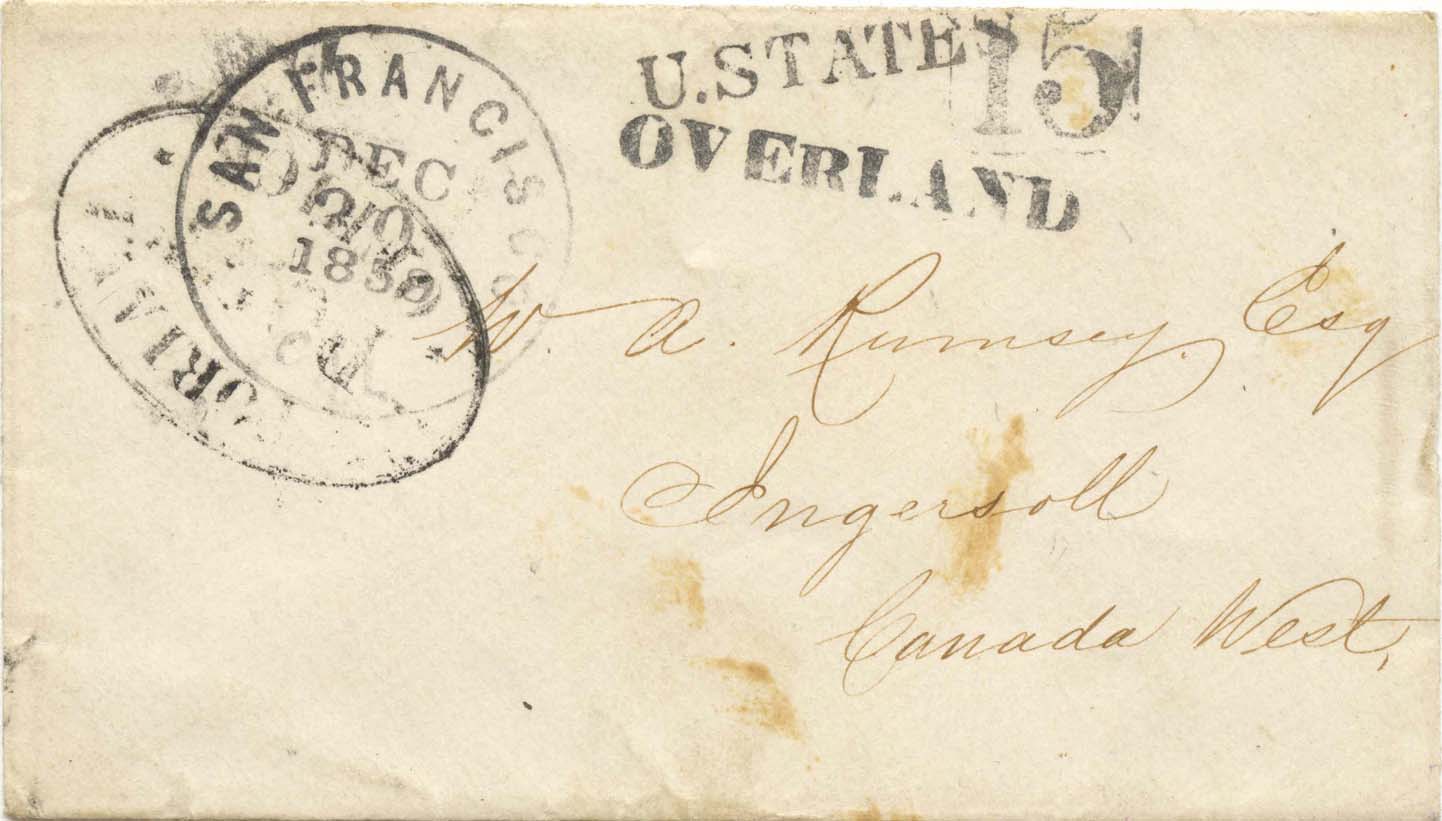 SAN FRANCISCO
DEC
20
1859
U. STATES
15
OVERLAND
W. A. Rumsey. Esq
Ingersoll
Canada West,